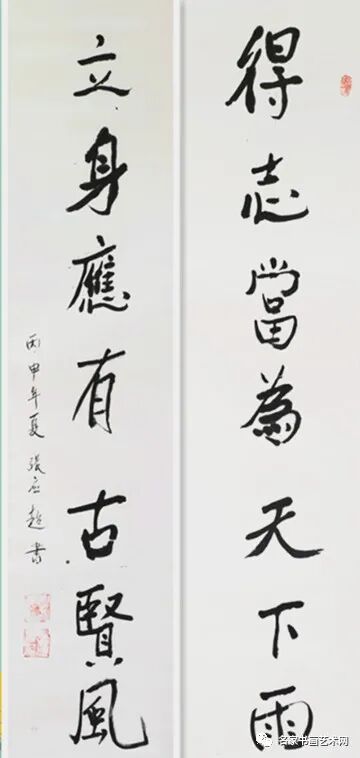 得志當為天下雨
立身應有古賢風
丙申年夏 張应超書
名家书画艺术网